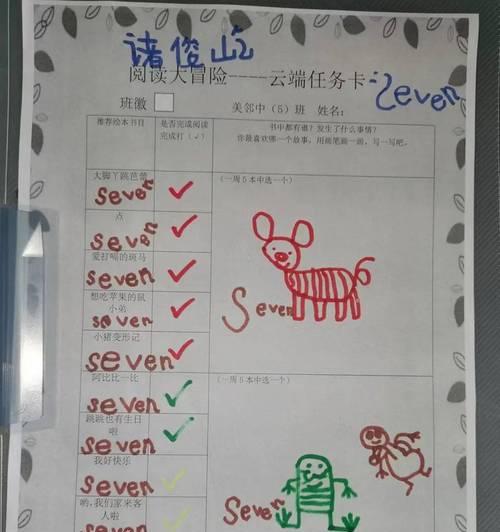 诸俊屹
阅读大冒险----云端任务卡
班徽 美邻中（5）班 姓名： Seven
推荐绘本书目
是否完成阅读
完成打（√）
书中都有谁？发生了什么事情？
你最喜欢哪一个故事，用画笔画一画，写一写吧。
大脚丫跳芭蕾
seven ✓
（一周5本中选一个）
点
seven ✓
爱打嗝的斑马
seven ✓
想吃苹果的鼠
小弟
seven ✓
Seven
小猪变形记
seven ✓
阿比比一比
seven ✓
（一周5本中选一个）
跳跳也有生日
啦
seven ✓
我好快乐
seven ✓
哟,我们家来客
人啦
seven ✓
Seven